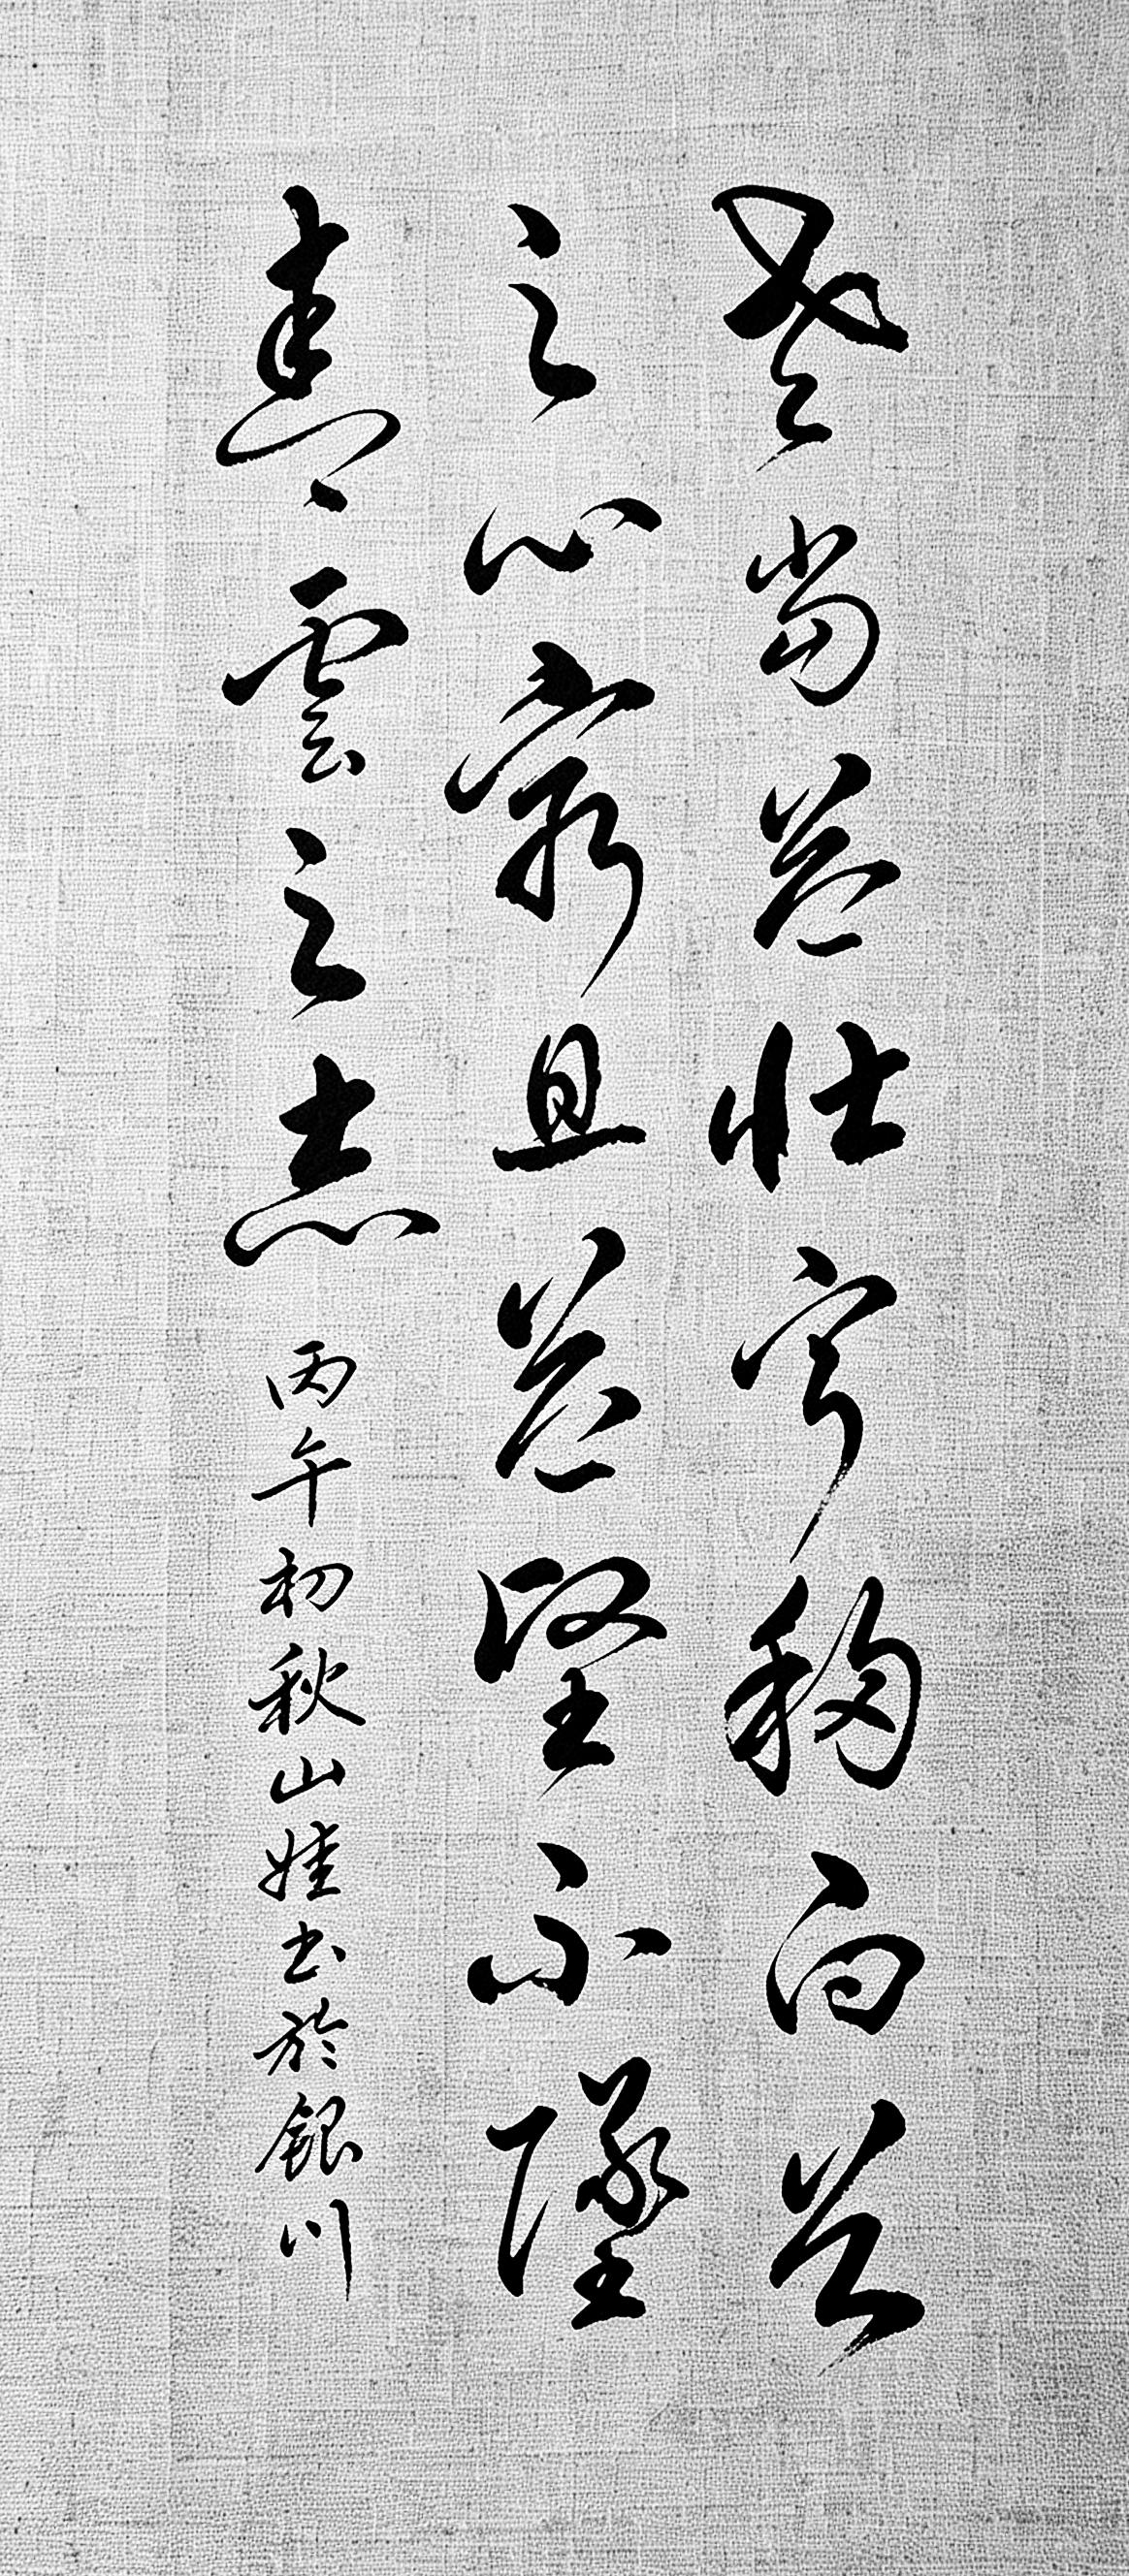 老當益壯寧移白首
之心窮且益堅不墜
青雲之志
丙午初秋山娃書於銀川